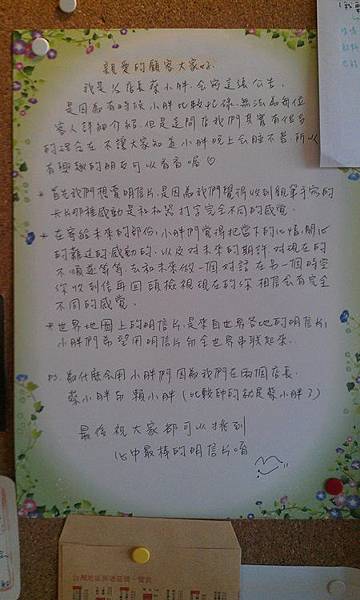 親愛的顧客大家好.
我是½店長蔡小胖.会寫這張公告.
是因為有時候小胖比較忙錄.無法為每位
客人詳細介紹.但是這間店我們其實有很多
的理念在.不讓大家知道小胖晚上会睡不著.所以
有興趣的朋友可以看看喔♡
首先我們想賣明信片.是因為我們覺得收到親筆手寫的
卡片那種感動是和机器打字完全不同的感覺.
在寄給未來的部份.小胖們覺得把當下的心情.開心
的難過的感動的.以及對未來的期許.對現在的
不順遂等等.去和未來做一個對話.在另一個時空
你收到信再回頭檢視現在的你.相信会有完全
不同的感覺.
世界地圖上的明信片.是來自世界各地的明信片;
小胖們希望用明信片和全世界串聯起來.
為什麼会用小胖們.因為我們有兩個店長.
蔡小胖和賴小胖(比較帥的就是蔡小胖了)
最後祝大家都可以挑到
心中最棒的明信片唷